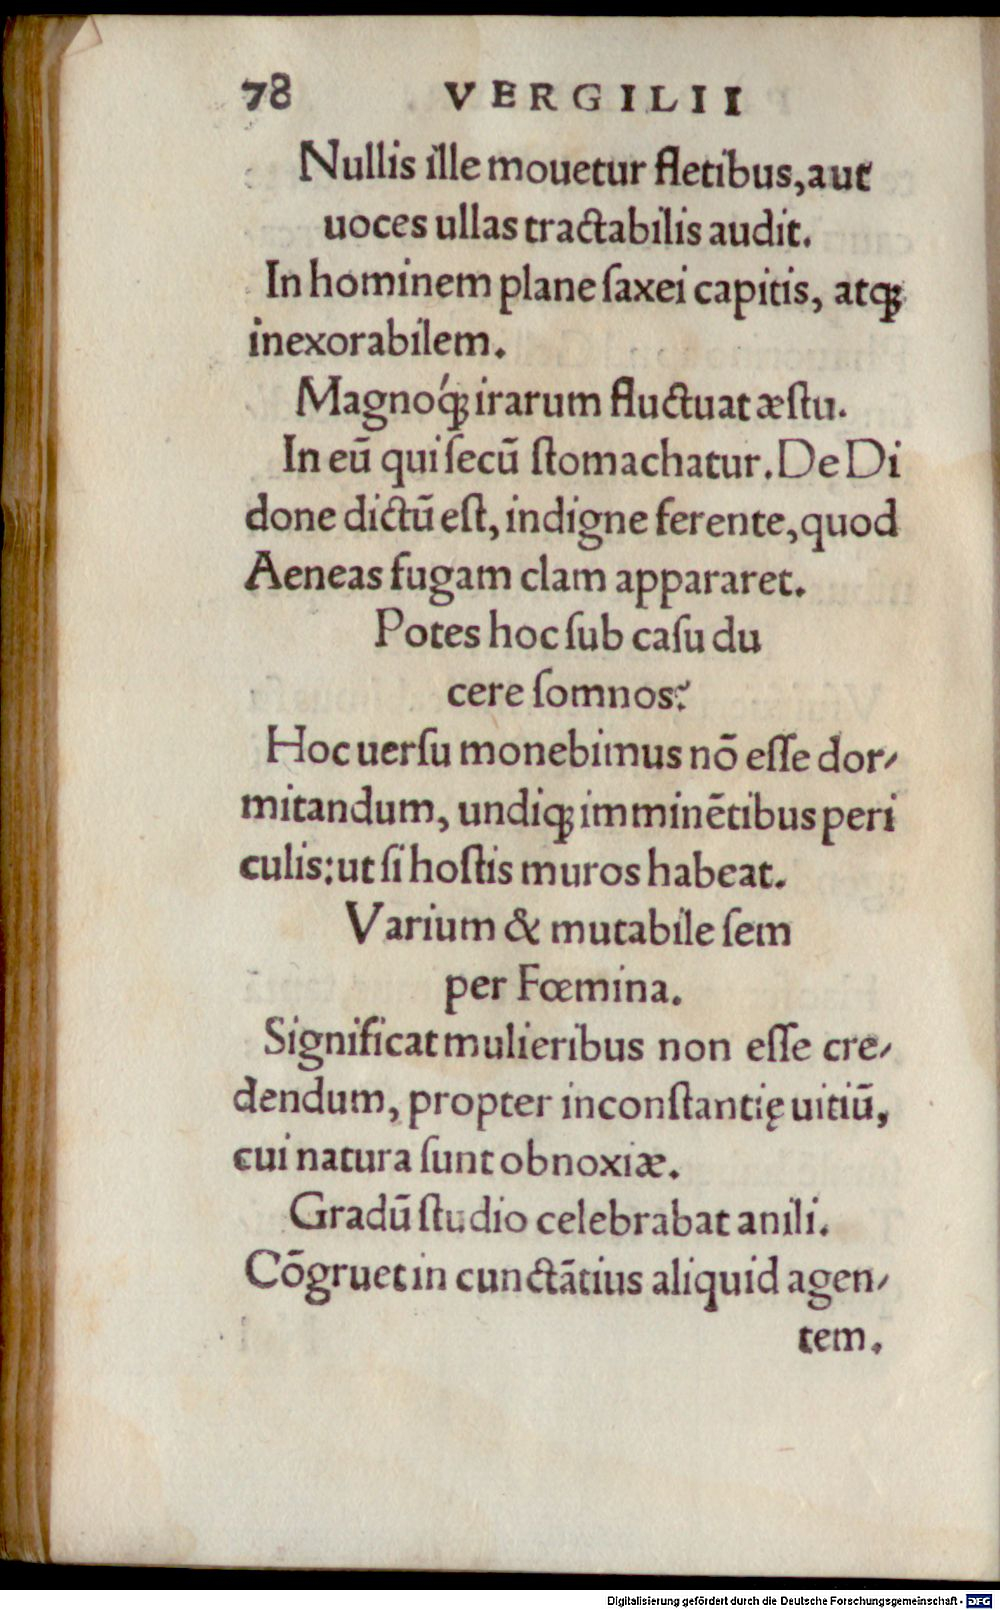 78 VERGILII
Nullis ille mouetur fletibus, aut
uoces ullas tractabilis audit.
In hominem plane ſaxei capitis, atqꝫ
inexorabilem.
Magnoq́ꝫ irarum fluctuat æſtu.
In eū qui ſecū ſtomachatur. De Di
done dictū eſt, indigne ferente, quod
Aeneas fugam clam appararet.
Potes hoc ſub caſu du
cere ſomnos?
Hoc uerſu monebimus nō eſſe dor⸗
mitandum, undiqꝫ imminētibus peri
culis: ut ſi hoſtis muros habeat.
Varium & mutabile ſem
per Fœmina.
Significat mulieribus non eſſe cre⸗
dendum, propter inconſtantię uitiū,
cui natura ſunt obnoxiæ.
Gradū ſtudio celebrabat anili.
Cōgruet in cunctātius aliquid agen⸗
tem.
Digitalisierung gefördert durch die Deutsche Forschungsgemeinschaft - DFG